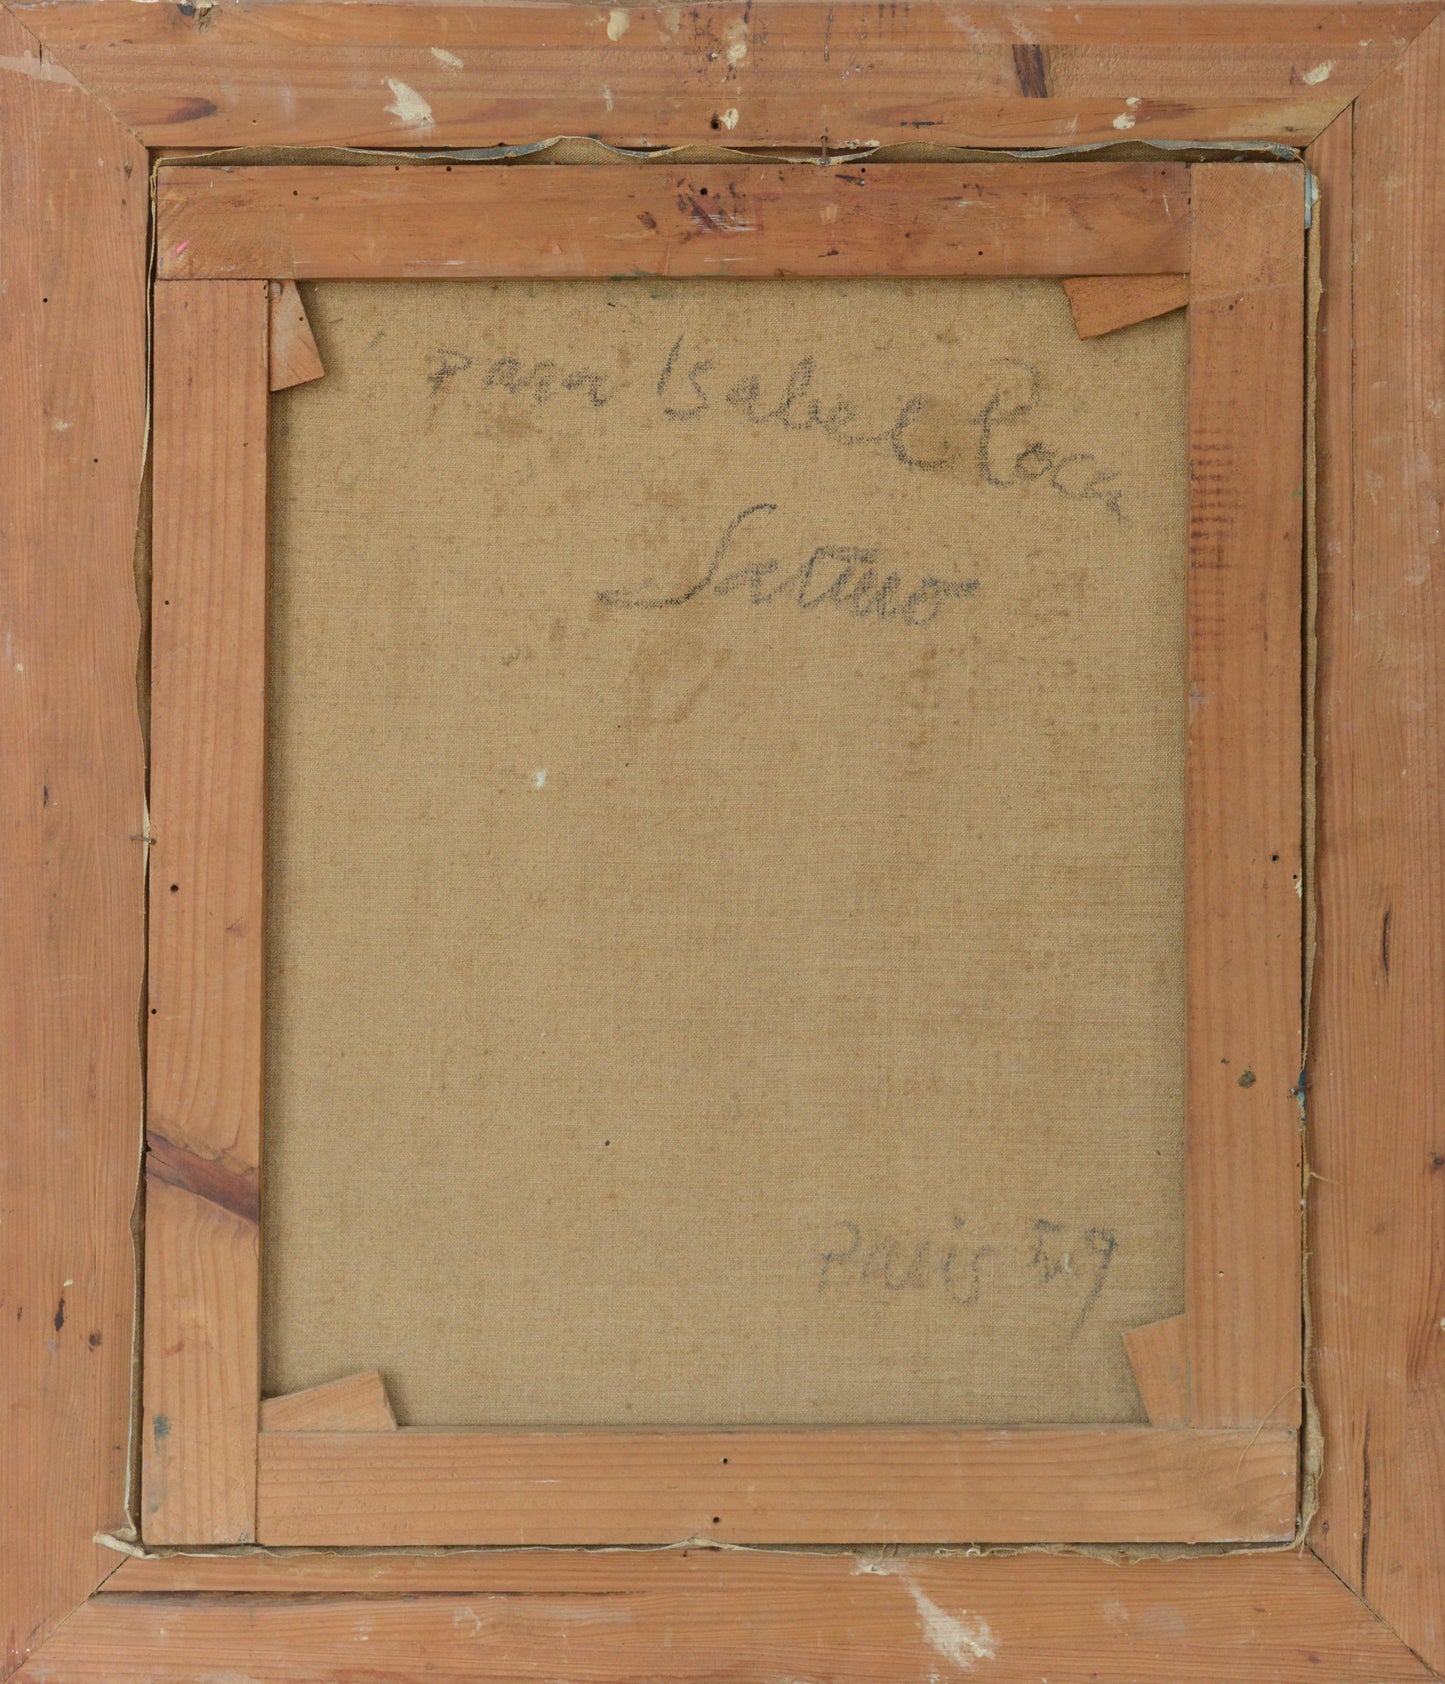 para Isabel Poca
Satino
Paris 59